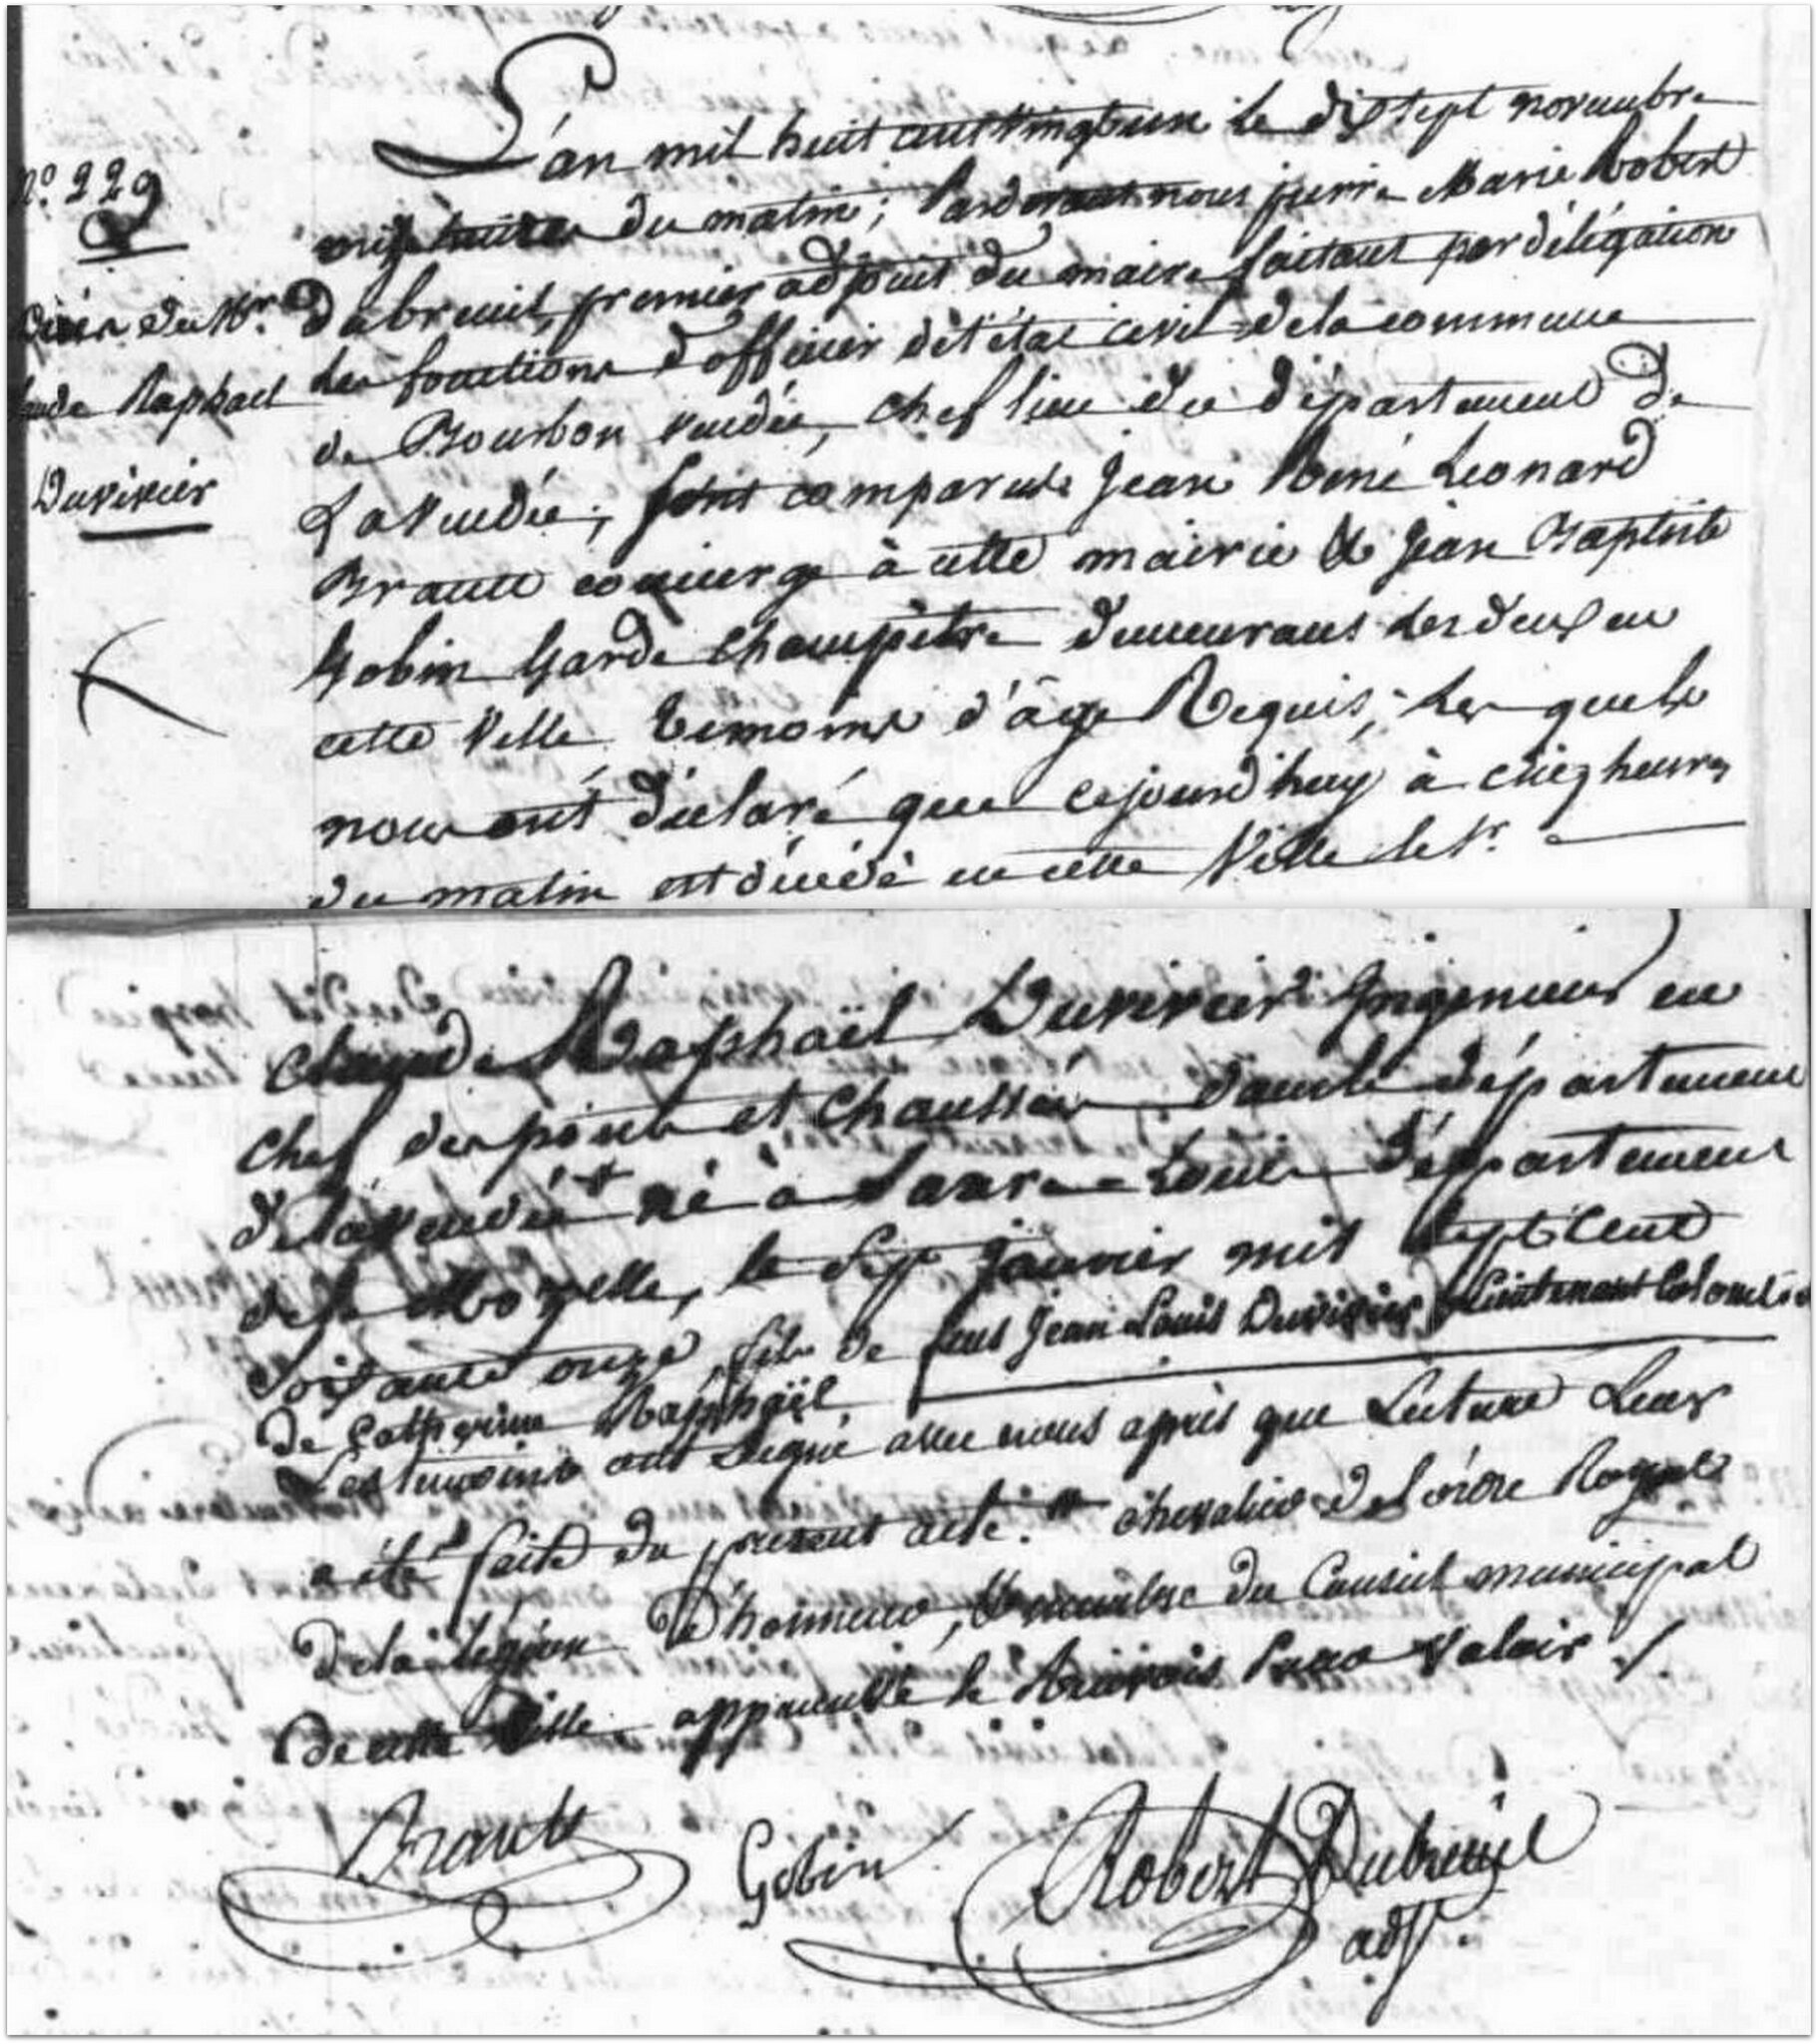 L'an mil huit cent vingt un le dix sept novembre
N.º 229
onze heures du matin ; Pardevant nous pierre Marie Robert
Décès du Mr.
Dubreuil, premier adjoint du maire faisant par délégation
les fonctions d'officier de l'état civil de la commune
Claude Raphael
de Bourbon vendée, chef lieu du département de
Duvivier
La Vendée ; sont comparus Jean René Leonard
Braud concierge à cette mairie & Jean Baptiste
Gobin Garde champêtre demeurans les deux en
cette Ville temoins d'âge Requis ; Les quels
nous ont déclaré que cejourd'huy à cinq heures
du matin est décédé en cette Ville le Sr.
Claude Raphaël Duvivier Ingenieur en
chef des ponts et chaussées dans le département
de la vendée + né à Sarre-Louis département
de la Mozelle, le Six janvier mil sept cent
soixante onze, fils de feus Jean Louis Duvivier, Lieutenant Colonel &
de Catherine Raphaël
Les temoins ont signé avec nous après que Lecture Leur
a été faite du present acte. + chevalier de l'ordre Royal
de la légion d'honneur, & membre du Conseil municipal
de cette Ville approuvé le renvois pour valoir ./.
Braud
Gobin
Robert Dubreuil
adjt.